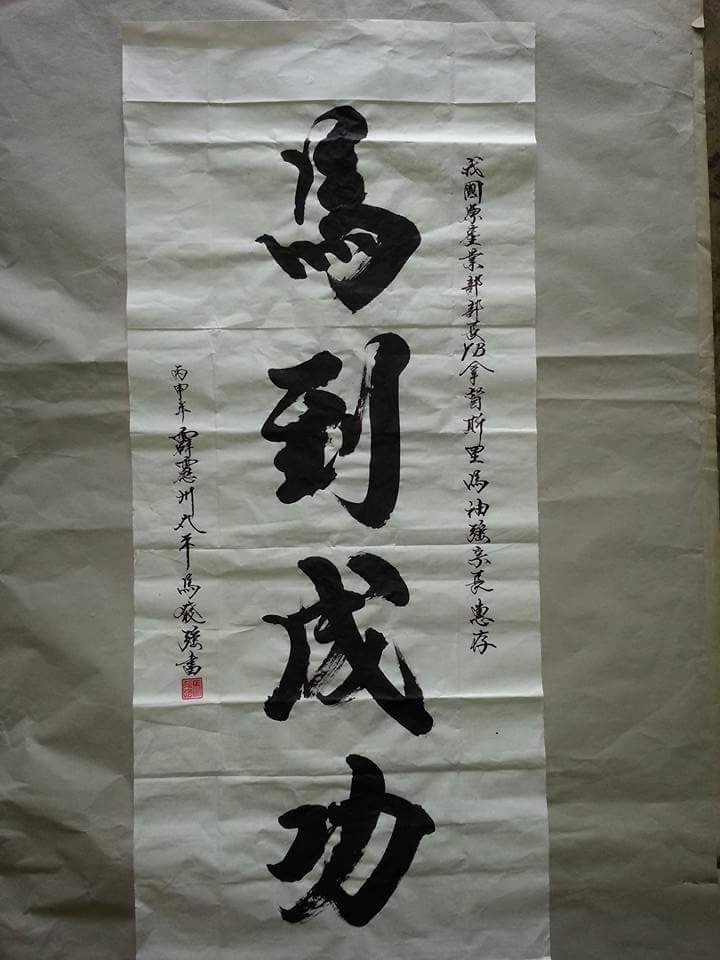 我國原產業部部長YB拿督斯里馬袖強宗長惠存
馬到成功
丙申年霹靂州太平馬發強書